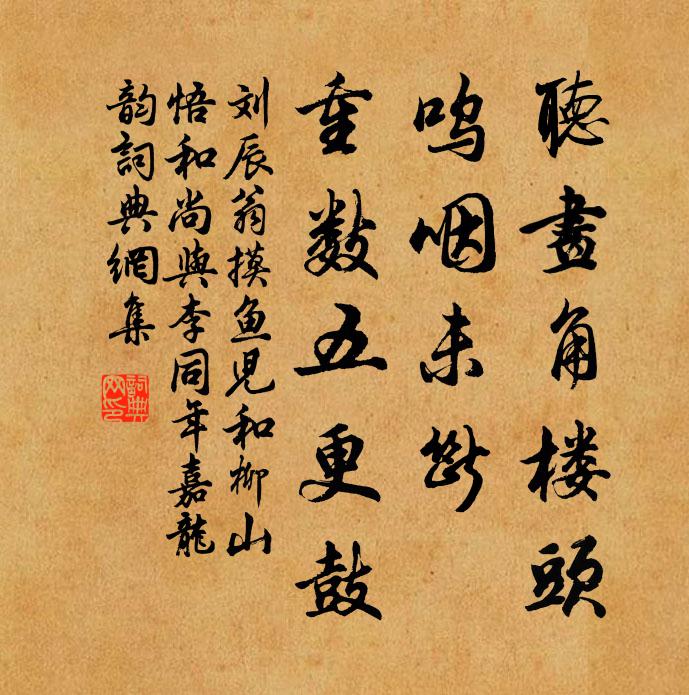 聽畫角楼頭
呜咽未斷
重数五更鼓
刘辰翁摸鱼児和柳山
悟和尚與李同年嘉龍
韵詞典網集
詞典网印